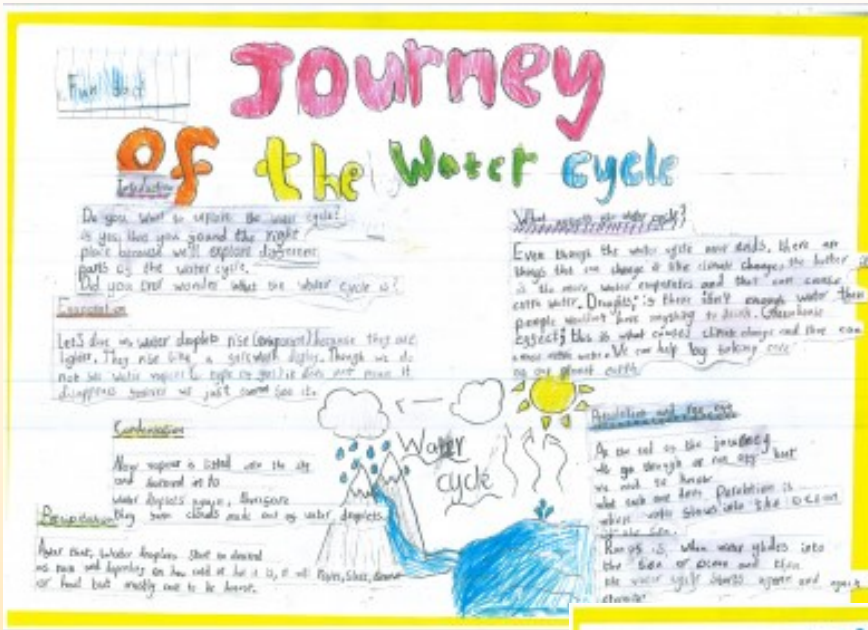 Fun
JOURNEY
OF the Water cycle
Introduction
Do you want to explore the water cycle?
is yes, then you found the right
place because we'll explore different
parts of the water cycle.
Did you ever wonder what the water cycle is?
Evaporation
Let's dive in, water droplets rise because they are
lighter. They rise like a firework display. Though we do
not see water vapour it does not mean it
disappears we just cannot see it.
Condensation
Now vapour is lifted into the sky
and turned in to
water droplets again, therefore
they form clouds made out of water droplets.
Precipitation
After that, water droplets start to descend
as rain and depending on how cold or hot it is, it will
or hail but mostly
What the water cycle?
Even though the water cycle never ends, there are
things that can change it like climate change, the hotter it
is the more water evaporates and that can cause
extra water. is there isn't enough water then
people wouldn't have anything to drink. Greenhouse
effect; this is what causes climate change and this can
extra water. We can help by taking care
of our planet earth
Water
cycle
and run off
At the end of the journey
we go through or run off but
we need to know
what each one does.
where water flows into the ocean
or the sea.
is, when water glides into
the sea or ocean and then
the water cycle starts again and again